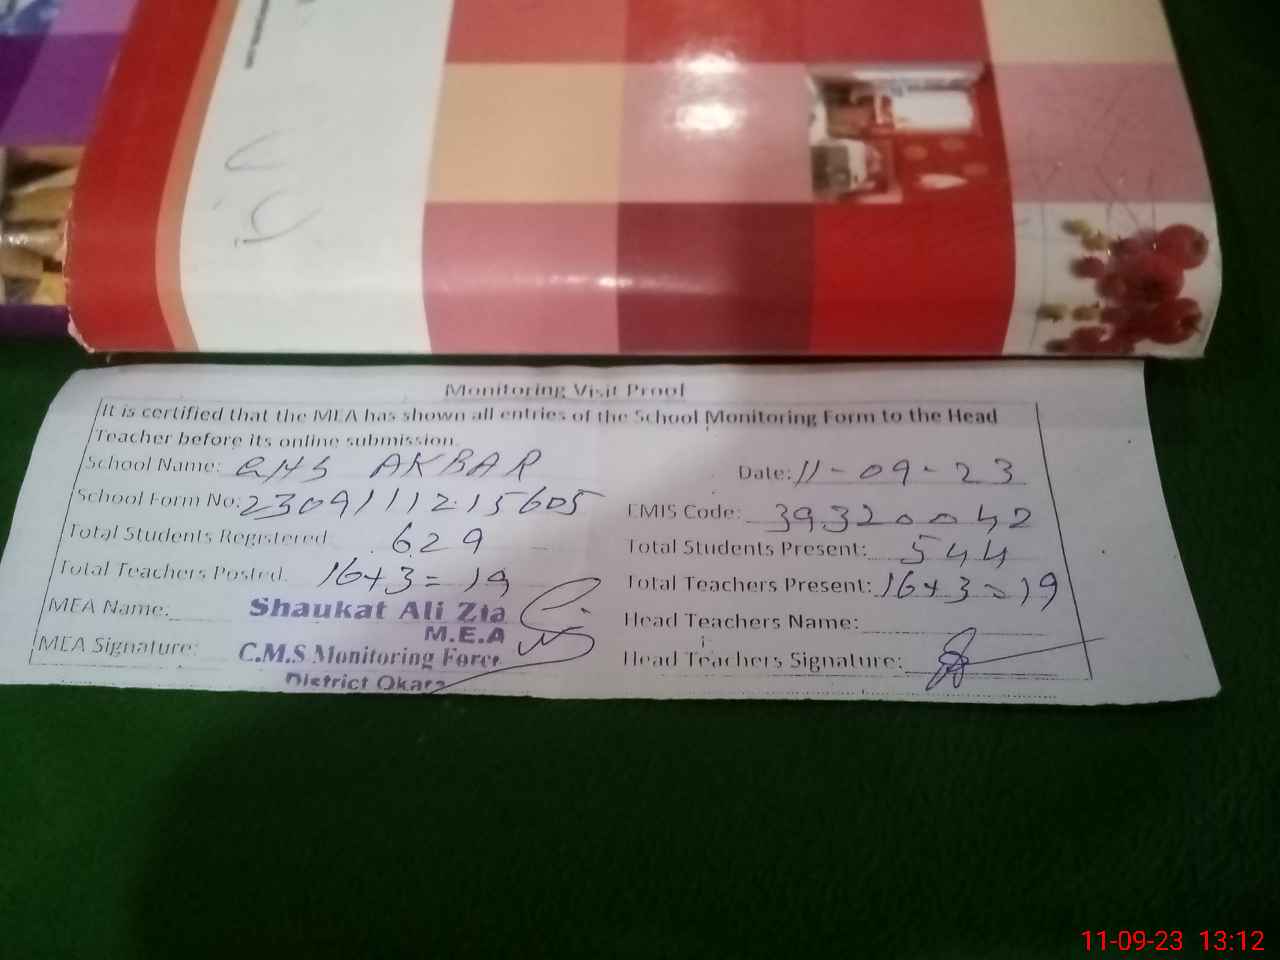 Monitoring Visit Proof
It is certified that the MEA has shown all entries of the School Monitoring Form to the Head
Teacher before its online submission.
School Name: GHS AKBAR Date: 11-09-23
School Form No: 2309111215605 EMIS Code: 39320042
Total Students Registered 629 Total Students Present: 544
Total Teachers Posted. 16+3=19 Total Teachers Present: 16+3=19
MEA Name: Shaukat Ali Zia Head Teachers Name:
M.E.A
MEA Signature: C.M.S Monitoring Force Head Teachers Signature:
District Okara
11-09-23 13:12